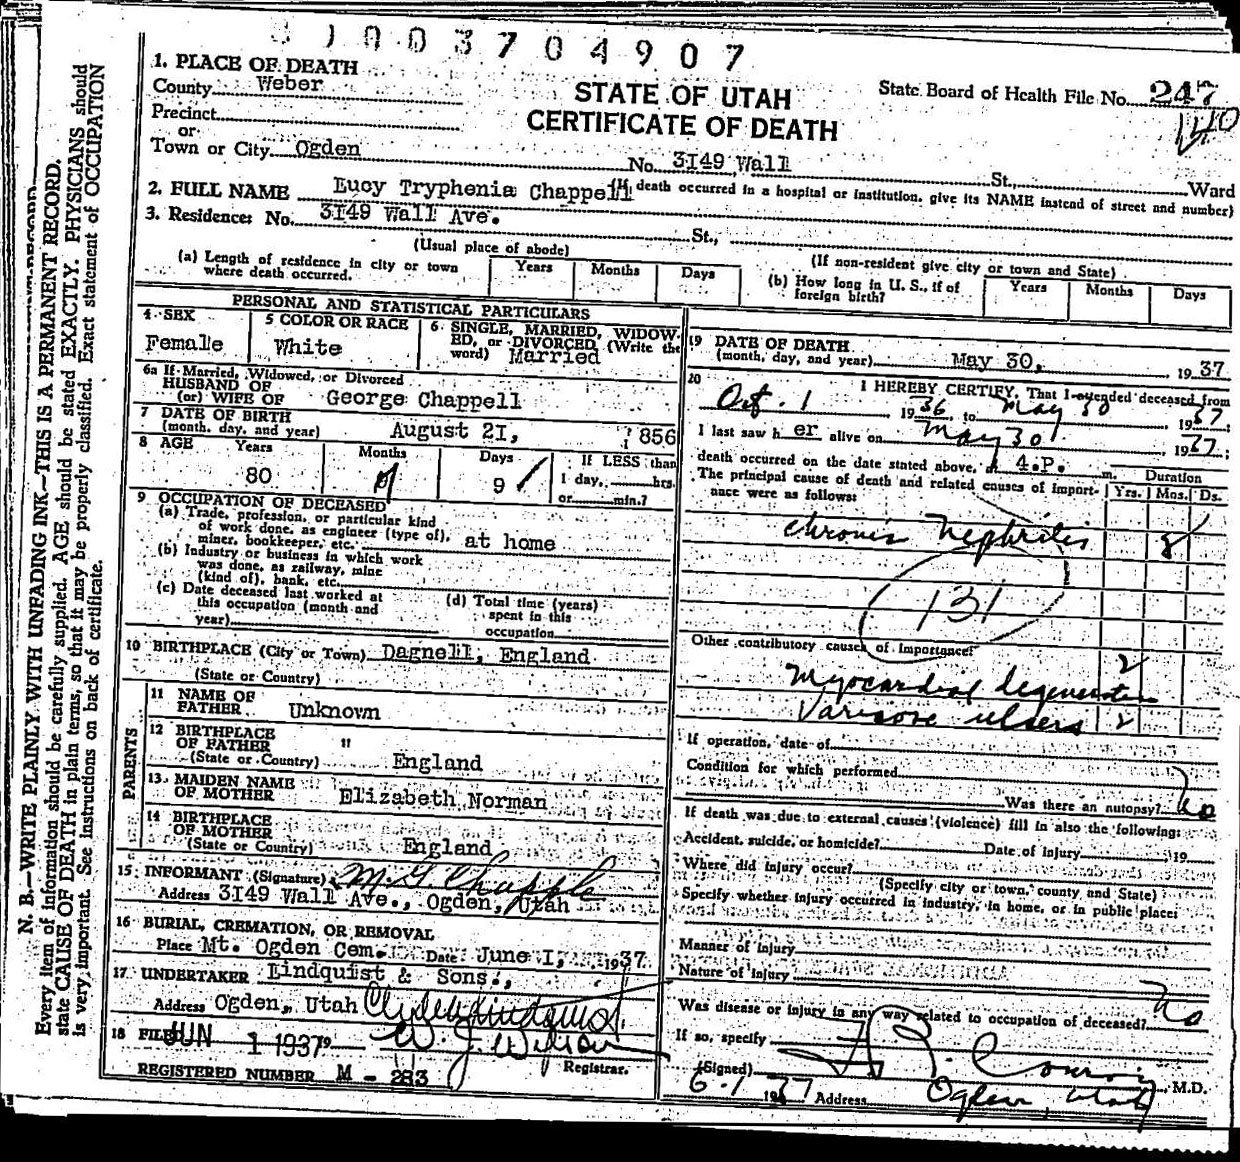 1003704907
1. PLACE OF DEATH
County Weber
Precinct
or
Town or City Ogden
STATE OF UTAH
CERTIFICATE OF DEATH
State Board of Health File No. 247
140
No. 3149 Wall St., Ward
2. FULL NAME Lucy Tryphenia Chappell
(If death occurred in a hospital or institution, give its NAME instead of street and number)
3. Residence: No. 3149 Wall Ave. St.,
(Usual place of abode)
(If non-resident give city or town and State)
(a) Length of residence in city or town where death occurred. Years Months Days
(b) How long in U. S., if of foreign birth? Years Months Days
PERSONAL AND STATISTICAL PARTICULARS
4 SEX
Female
5 COLOR OR RACE
White
6 SINGLE, MARRIED, WIDOWED, or DIVORCED (Write the word) Married
6a If Married, Widowed, or Divorced
HUSBAND OF
(or) WIFE OF George Chappell
7 DATE OF BIRTH
(month, day, and year) August 21, 1856
8 AGE Years Months Days If LESS than
80 9 1 day, hrs.
or min.?
9 OCCUPATION OF DECEASED
(a) Trade, profession, or particular kind
of work done, as engineer (type of),
miner, bookkeeper, etc. at home
(b) Industry or business in which work
was done, as railway, mine
(kind of), bank, etc.
(c) Date deceased last worked at
this occupation (month and
year)
(d) Total time (years)
spent in this
occupation
10 BIRTHPLACE (City or Town) Dagnell, England
(State or Country)
PARENTS
11 NAME OF
FATHER Unknown
12 BIRTHPLACE
OF FATHER "
(State or Country) England
13. MAIDEN NAME
OF MOTHER Elizabeth Norman
14 BIRTHPLACE
OF MOTHER
(State or Country) England
15. INFORMANT (Signature) M. G. Chapple
Address 3149 Wall Ave., Ogden, Utah
16 BURIAL, CREMATION, OR REMOVAL
Place Mt. Ogden Cem. Date June 1, 1937
17. UNDERTAKER Lindquist & Sons.,
Address Ogden, Utah
18 FILED JUN 1 1937 19
W. J. Wilson
Registrar.
REGISTERED NUMBER M - 283
19 DATE OF DEATH
(month, day, and year) May 30, 1937
20 I HEREBY CERTIFY, That I attended deceased from
Oct. 1 1936, to May 30 1937
I last saw her alive on May 30 1937;
death occurred on the date stated above, at 4.P. m.
The principal cause of death and related causes of importance were as follows:
Duration
Yrs. Mos. Ds.
Chronic Nephritis 8
131
Other contributory causes of importance:
Myocardial degeneration 2
Varicose ulcers 2
If operation, date of
Condition for which performed
Was there an autopsy? No
If death was due to external causes (violence) fill in also the following:
Accident, suicide, or homicide? Date of injury 19
Where did injury occur?
(Specify city or town, county and State)
Specify whether injury occurred in industry, in home, or in public place:
Manner of Injury
Nature of Injury
Was disease or injury in any way related to occupation of deceased? No
If so, specify
(Signed) M.D.
6-1 1937 Address Ogden, Utah
N. B.—WRITE PLAINLY WITH UNFADING INK—THIS IS A PERMANENT RECORD.
Every item of information should be carefully supplied. AGE should be stated EXACTLY. PHYSICIANS should
state CAUSE OF DEATH in plain terms, so that it may be properly classified. Exact statement of OCCUPATION
is very important. See instructions on back of certificate.